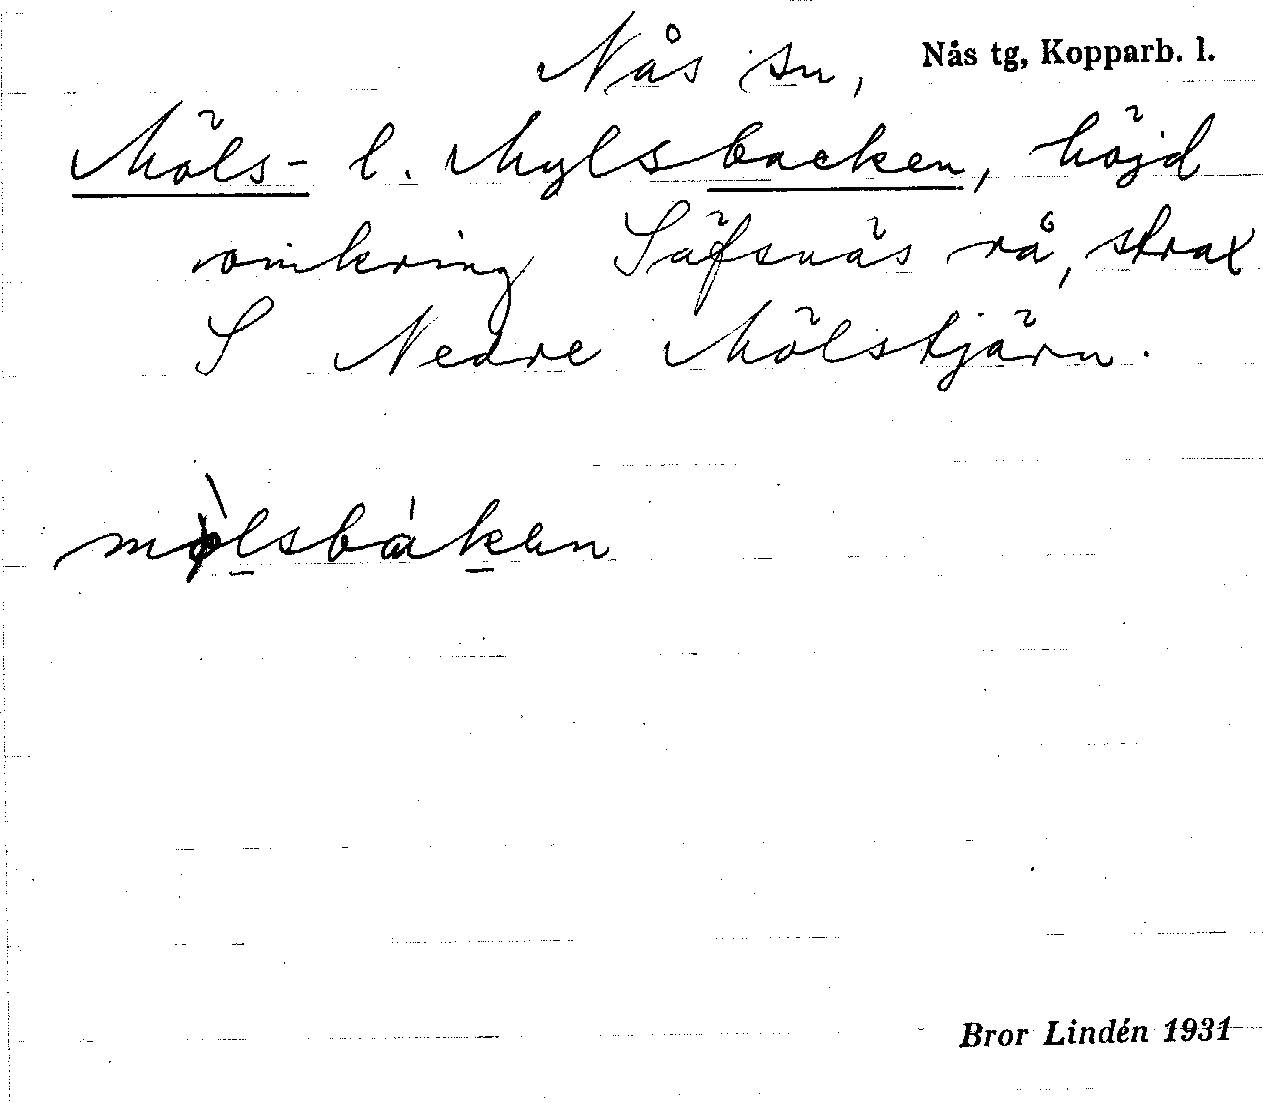 Nås sn, Nås tg, Kopparb. l.
Möls- l. Mylsbacken, höjd
omkring Säfsnäs rå, strax
S Nedre Mölstjärn.
mø̀lsbákan
Bror Lindén 1931